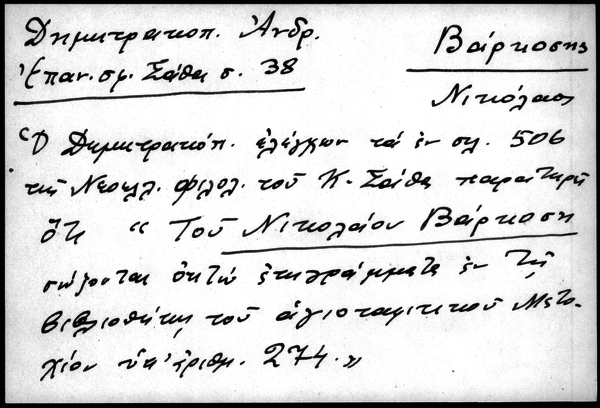 Δημητρακοπ. Ἀνδρ.
Ἐπαν. σμ. Σάθα σ. 38
Βάρκοσης
Νικόλαος
Ὁ Δημητρακόπ. ἐλέγχων τά ἐν σελ. 506
τῆς Νεοελλ. φιλολ. τοῦ Κ. Σάθα παρατηρεῖ
ὅτι “ Τοῦ Νικολάου Βάρκοση
σώζονται ὀκτώ ἐπιγράμματα ἐν τῇ
βιβλιοθήκῃ τοῦ ἁγιοταφιτικοῦ Μετο-
χίου ὑπ' ἀριθμ. 274. »